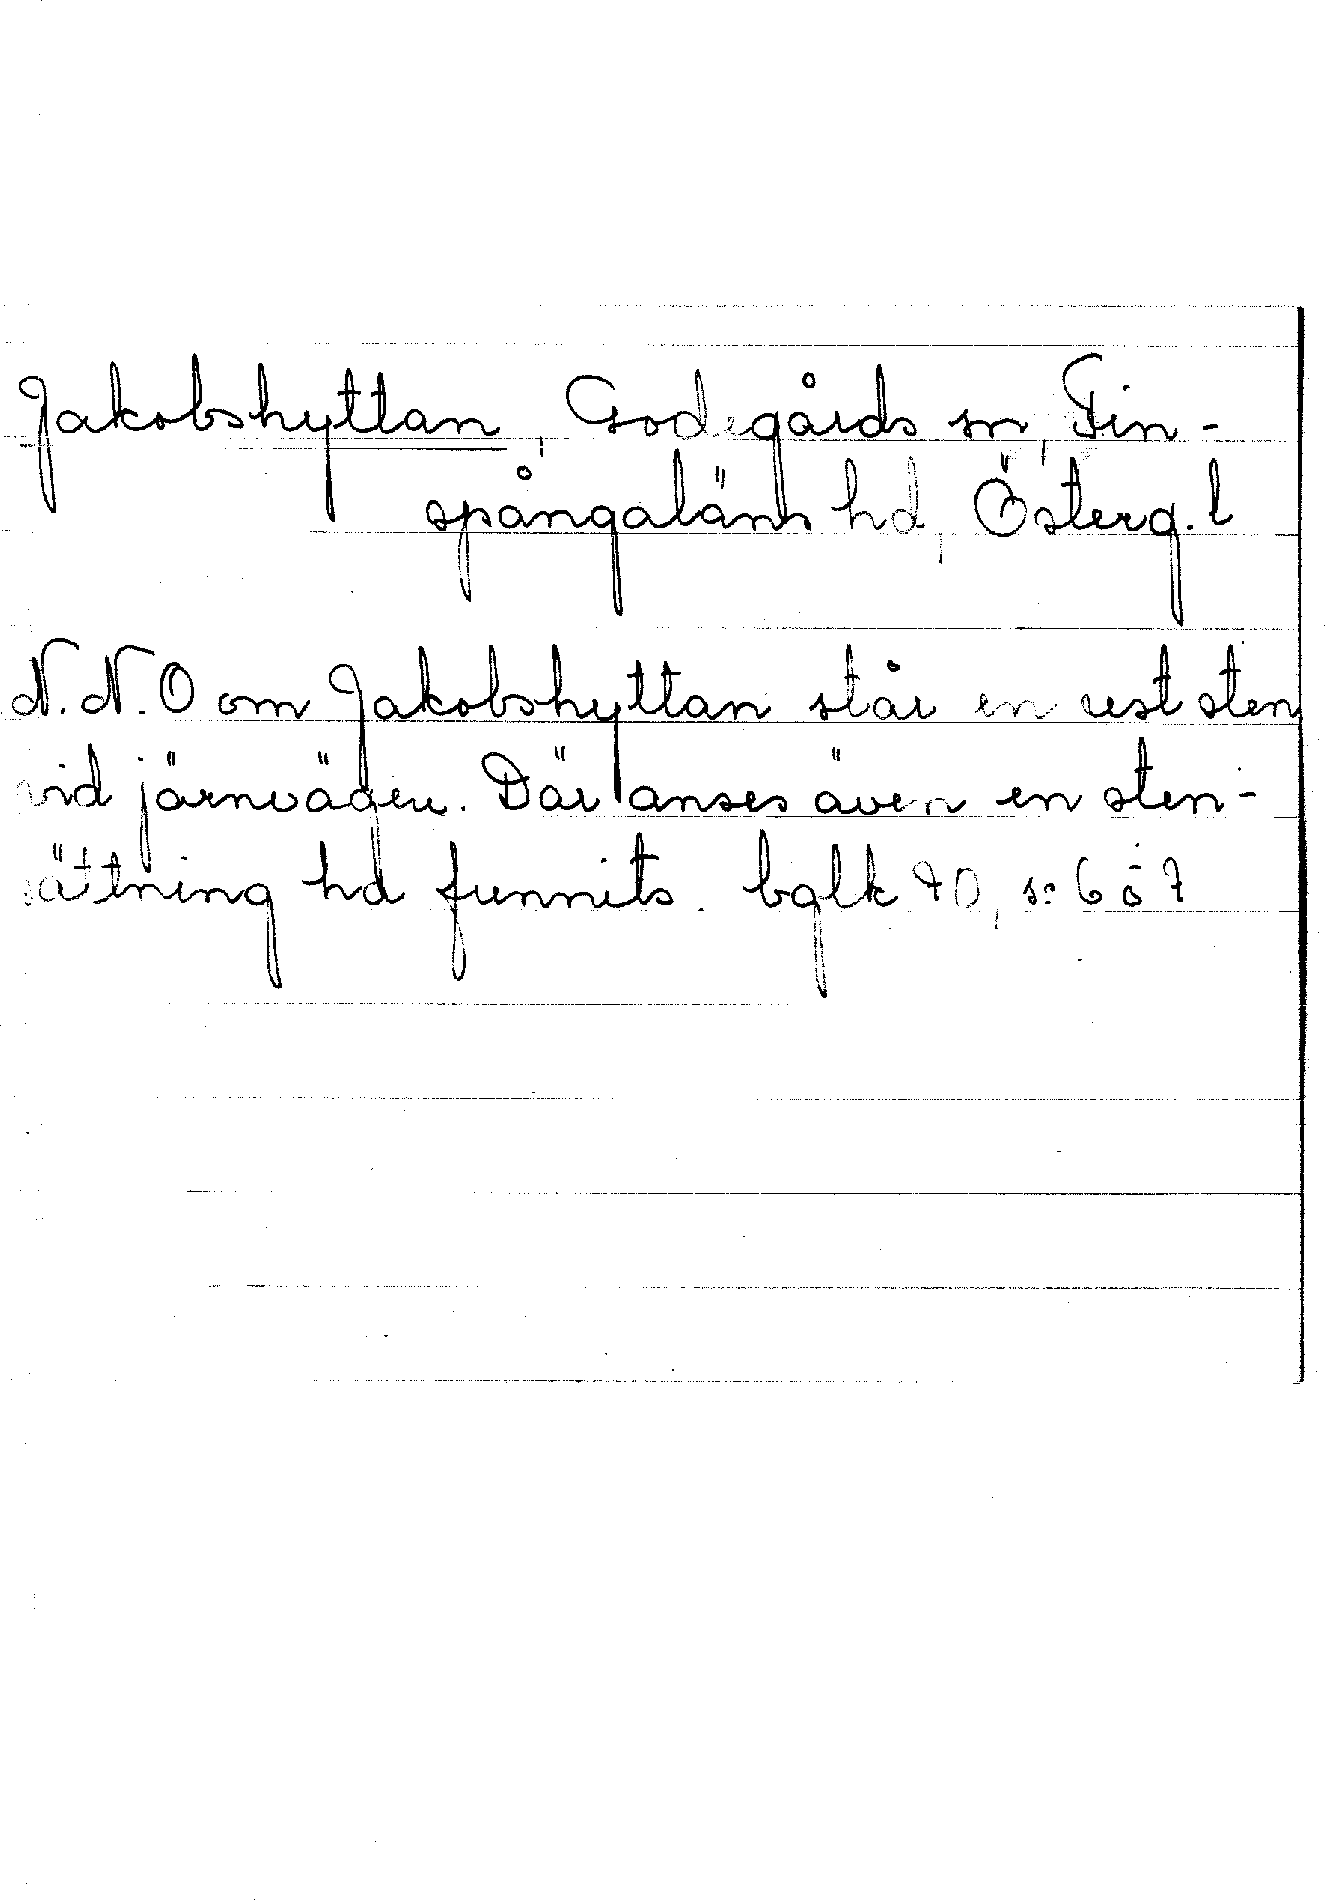 Jakobshyttan, Godegårds sn, Fin-
spångaläns hd, Österg. l
N.N.O om Jakobshyttan står en rest sten
vid järnvägen. Där anses även en sten-
sättning hd funnits. bglk 70, s: 6 ö 7